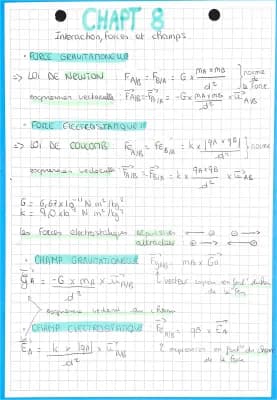 CHAPT 8
Interaction, forces et champs.
• FORCE GRAVITATIONELLE
=> LOI DE NEWTON F A/B = F B/A = G × mA × mB / d² } norme de la force
expression vectorielle : F A/B = -F B/A = -G × mA × mB / d² × u A/B
• FORCE ELECTROSTATIQUE
=> LOI DE COULOMB F A/B = F B/A = k × |qA × qB| / d² } norme
expression vectorielle F A/B = -F B/A = k × qA × qB / d² × u A/B
G = 6,67 × 10⁻¹¹ N m²/kg²
k = 9,0 × 10⁹ N m²/
Les forces electrostatiques répulsives
attractives
• CHAMP GRAVITATIONEL F A/B = mB × G
G A = -G × mA / d² × u A/B
vecteur en fonct° du
expression du champ
• CHAMP ELECTROSTATIQUE F A/B = qB × E A
E A = k × qA / d² × u A/B
expression en fonct° du champ
de la force